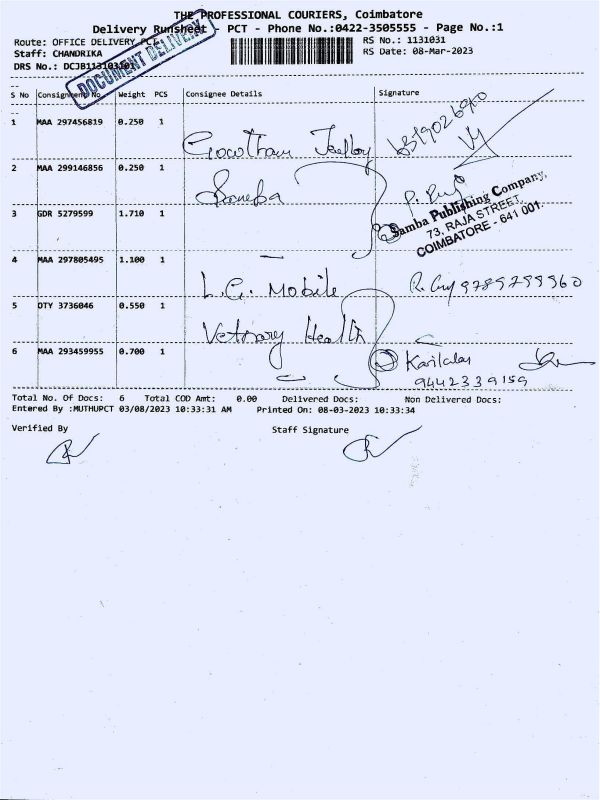 THE PROFESSIONAL COURIERS, Coimbatore
Delivery Runsheet - PCT - Phone No.:0422-3505555 - Page No.:1
Route: OFFICE DELIVERY
RS No.: 1131031
Staff: CHANDRIKA
RS Date: 08-Mar-2023
DRS No.:
DOCUMENT DELIVERY
S No Consignment No. Weight PCS Consignee Details Signature
1 MAA 297456819 0.250 1
2 MAA 299146856 0.250 1
Samba Publishing Company,
73, RAJA STREET,
COIMBATORE - 641 001.
3 GDR 5279599 1.710 1
4 MAA 297805495 1.100 1 L.G. Mobile
5 DTY 3736046 0.550 1 Vetnary Health
6 MAA 293459955 0.700 1
9442339159
Total No. Of Docs: 6 Total COD Amt: 0.00 Delivered Docs: Non Delivered Docs:
Entered By :MUTHUPCT 03/08/2023 10:33:31 AM Printed On: 08-03-2023 10:33:34
Verified By Staff Signature